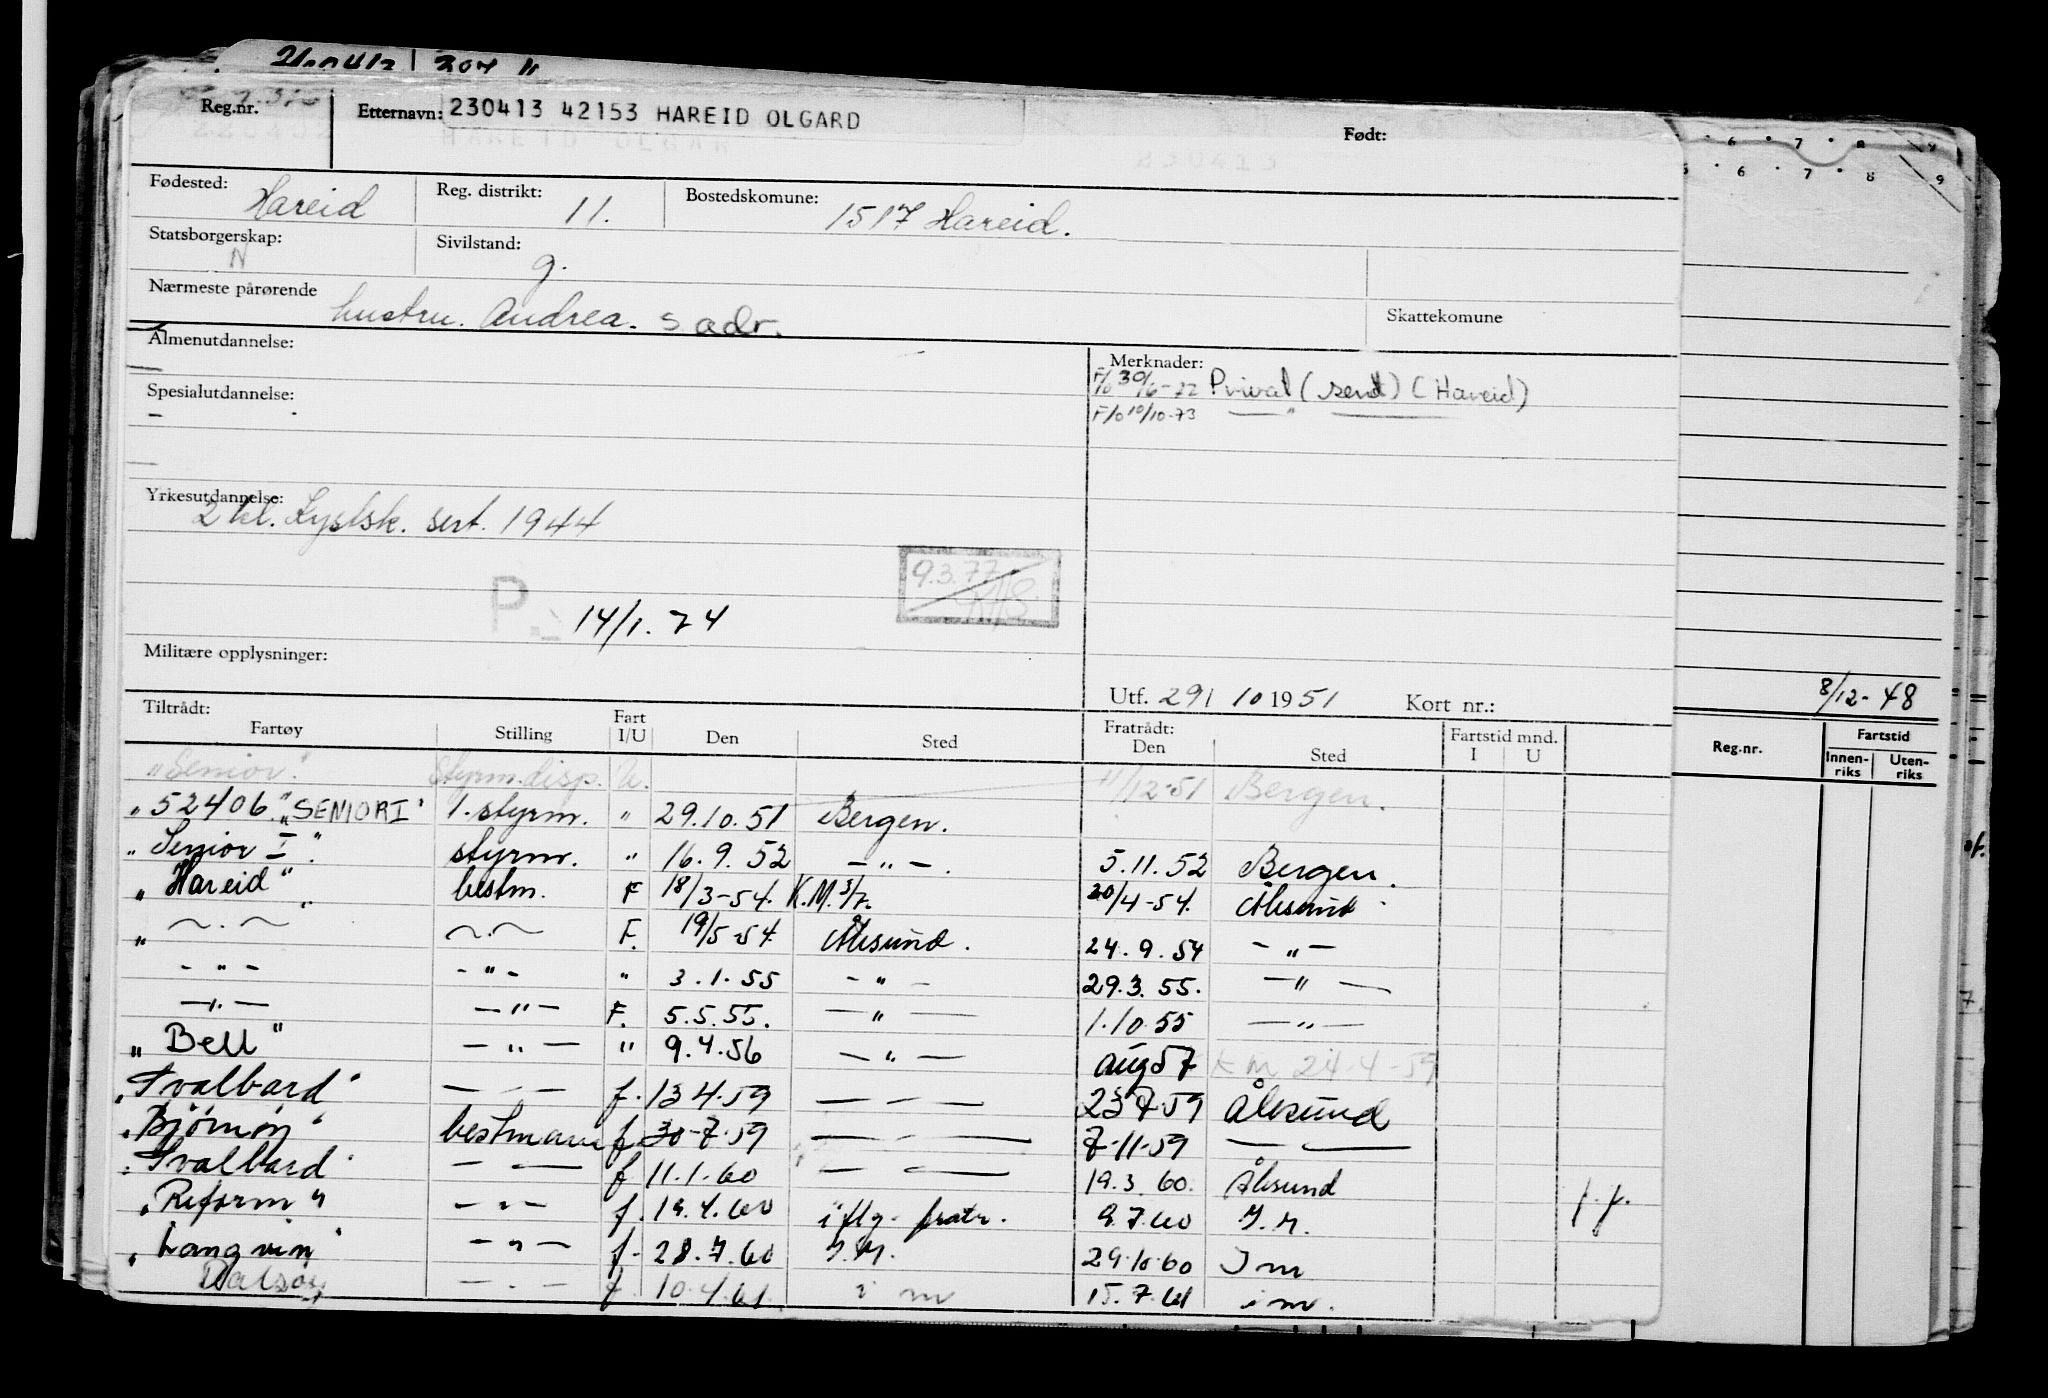 Reg.nr. Etternavn: 230413 42153 HAREID OLGARD Født:
Fødested: Hareid Reg. distrikt: 11. Bostedskomune: 1517 Hareid.
Statsborgerskap: N Sivilstand: g.
Nærmeste pårørende hustru. Andrea. s. adr. Skattekomune
Almenutdannelse: Merknader:
F/o 30/ 16-72 Privat (sendt) (Hareid)
Spesialutdannelse: F/o 10/10-73 — " —
Yrkesutdannelse: 2 kl. Kystsk. sert. 1944
9.3.77
P. 14/1.74
Militære opplysninger:
8/12-48
Utf. 29/ 10 1951 Kort nr.:
Tiltrådt: Fratrådt: Fartstid mnd. Reg.nr. Fartstid
Fartøy Stilling Fart I/U Den Sted Den Sted I U Innen-riks Uten-riks
"Senior" styrm. disp. U. 11/12-51 Bergen.
"52406" "SENIOR I" 1. styrm. " 29.10.51 Bergen.
"Senior I". styrm. " 16.9.52 — " — 5.11.52 Bergen.
"Hareid" bestm. F 18/3-54. K.M. 3/7. 20/4-54. Ålesund
" — . — — . — F. 19/5-54. Ålesund. 24.9.54 — " —
- " - - " - " 3.1.55 - " - 29.3.55. — " —
— " — — " — F. 5.5.55. — " — 1.10.55 — " —
"Bell" — " — " 9.4.56 — " — aug 57 K M 24-4-59
"Svalbard" — - — f. 13.4.59 — - — 23.7.59 Ålesund
"Bjørnøy" bestmann f. 30-7-59 — — 7-11-59 — —
"Svalbard" — — f 11.1.60 — — 19.3.60. Ålesund
"Reform" - " - f. 19.4.60 iflg. fratr. 9.7.60 I.M. f.f.
"Langvin" - " - f. 28.7.60 I.M. 29.10.60 I m
Dalsøy — . — f. 10.4.61 i m 15.7.61 i m.